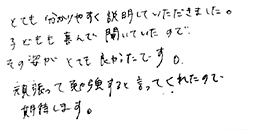 とても分かりやすく説明していただきました。
子どもも喜んで聞いていたので
その姿がとても良かったです。
頑張って勉強すると言ってくれたので
期待します。